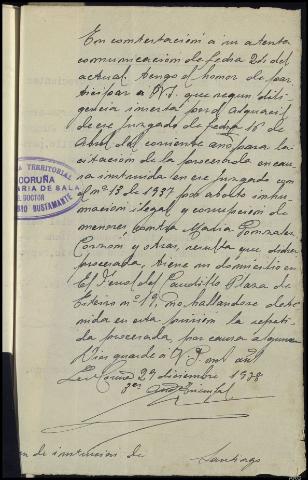 En contestación a su atenta
comunicación de fecha 26 del
actual tengo el honor de par
ticipar a V.I. que según dili
gencia inserta por el alguacil
de ese Juzgado de fecha 16 de
Abril del corriente año para la
citación de la procesada en cau
sa instruida en ese juzgado con
el nº 13 de 1937 por aborto inhu
mación ilegal y corrupción de
menores, contra María González
y otras, resulta que dicha
procesada, tiene su domicilio en
El Ferrol del Caudillo Plaza de
nº 19, no hallandose dete
nida en esta prisión la repeti
da procesada, por causa alguna
Dios guarde a V.I. m. a.
La Coruña 29 diciembre 1938
TERRITORIAL
CORUÑA
ARIA DE SALA
DOCTOR
BUSTAMANTE
de instrucción de Santiago